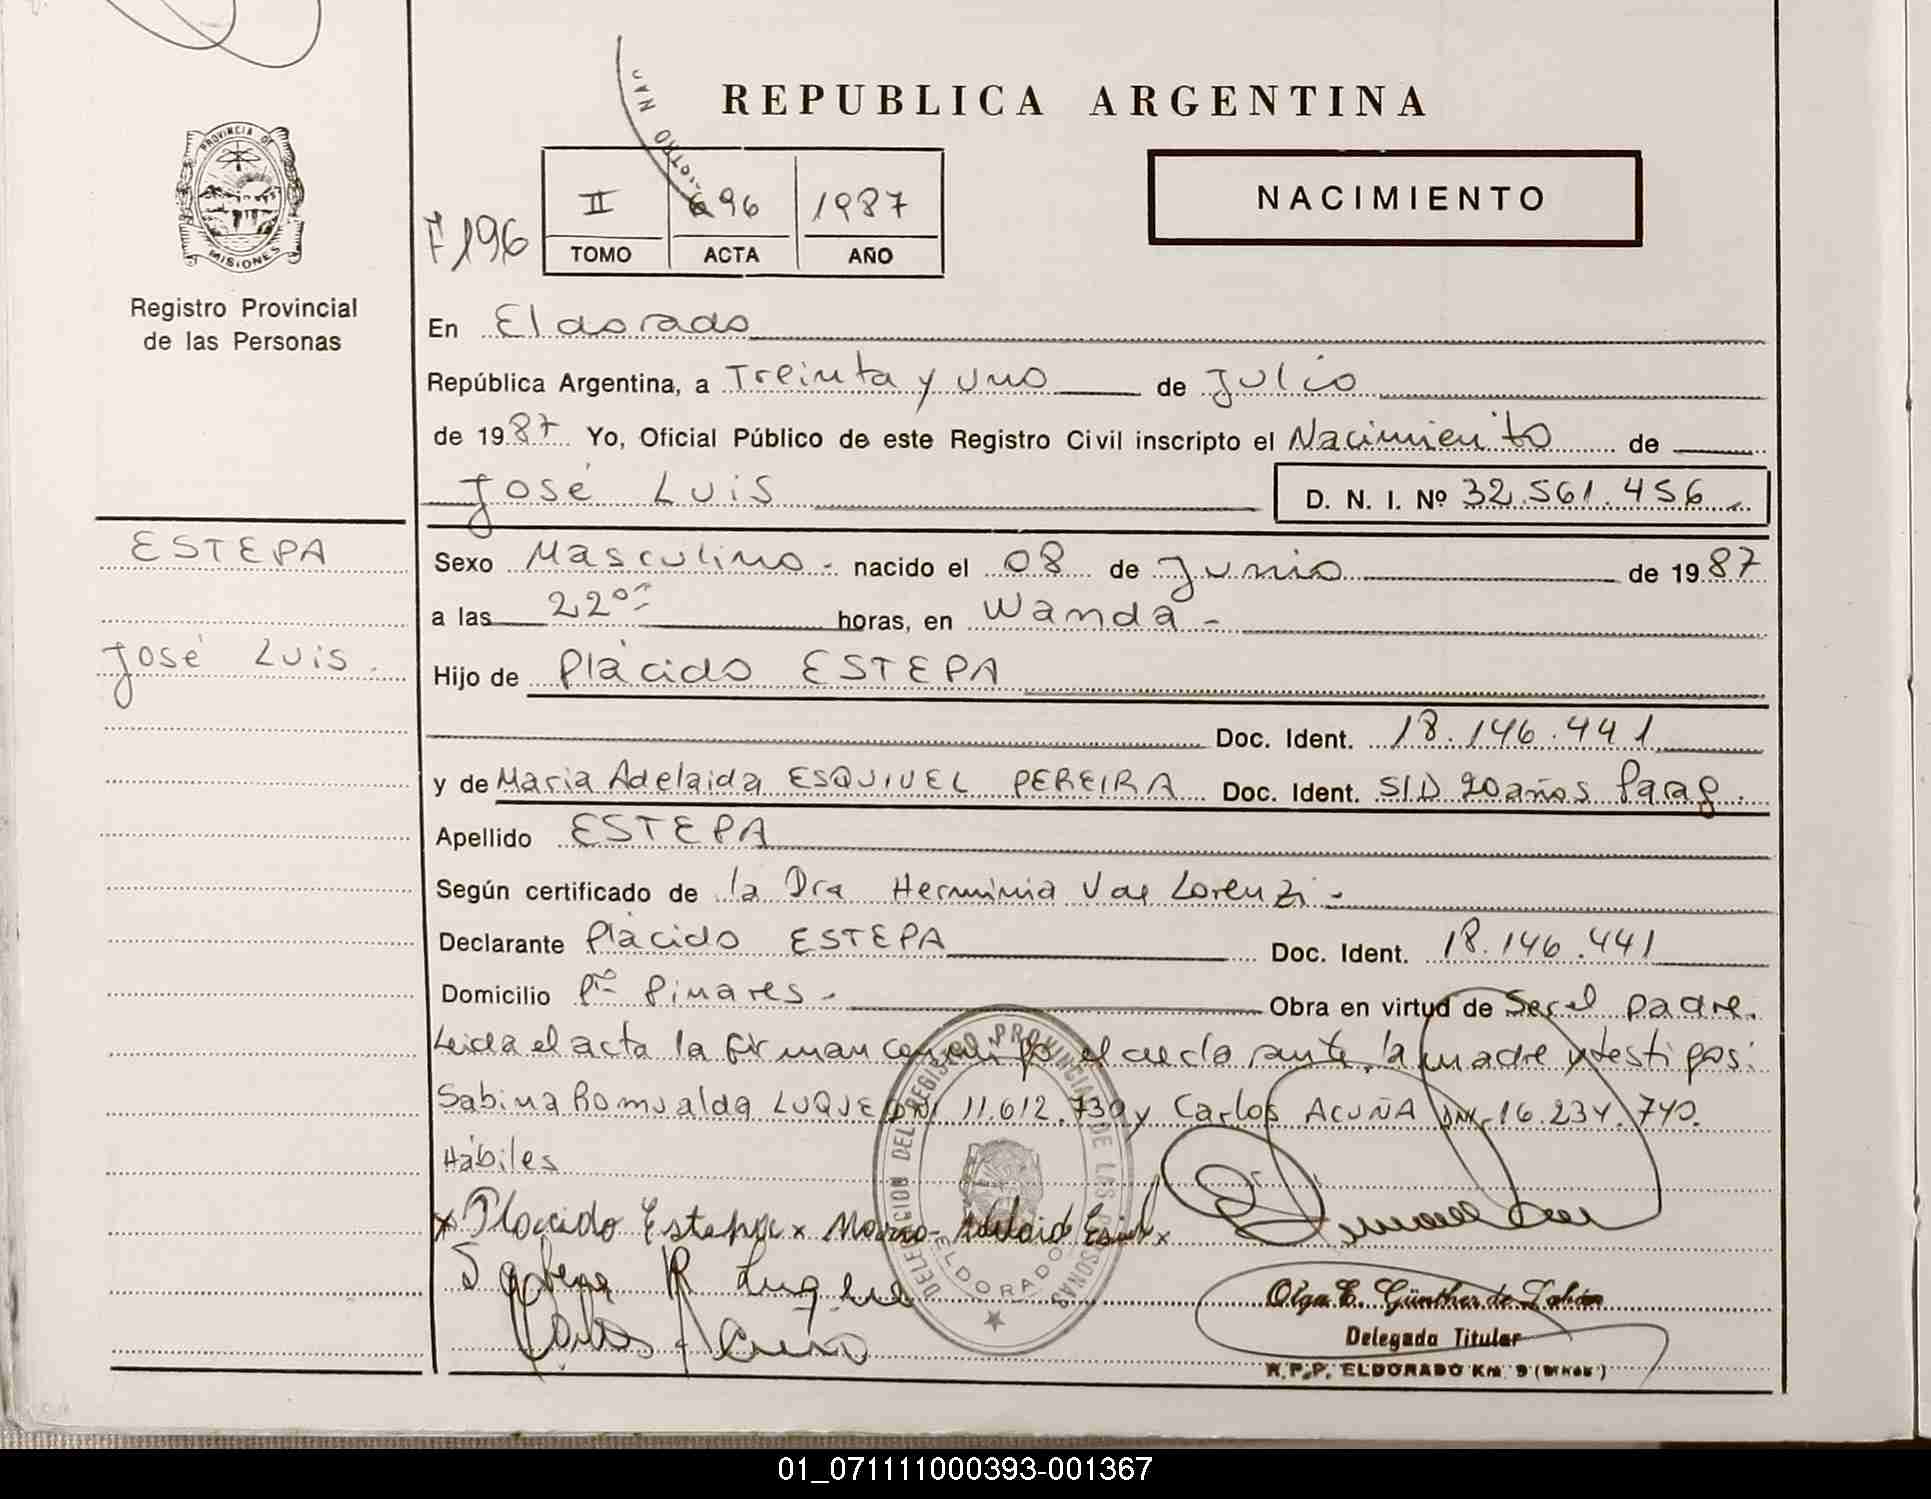 REPUBLICA ARGENTINA
PROVINCIA DE
MISIONES
Registro Provincial
de las Personas
NACIMIENTO
F 196
II 696 1987
TOMO ACTA AÑO
En Eldorado
República Argentina, a Treinta y uno de Julio
de 1987 Yo, Oficial Público de este Registro Civil inscripto el Nacimiento de
José Luis D. N. I. Nº 32.561.456
ESTEPA
José Luis.
Sexo Masculino - nacido el 08 de Junio de 1987
a las 22⁰⁰ horas, en Wanda -
Hijo de Plácido ESTEPA
Doc. Ident. 18.146.441
y de Maria Adelaida ESQUIVEL PEREIRA Doc. Ident. S/D 20 años Parag.
Apellido ESTEPA
Según certificado de la Dra Herminia V de Lorenzi -
Declarante Plácido ESTEPA Doc. Ident. 18.146.441
Domicilio Pto Pinares - Obra en virtud de Ser el padre.
Leida el acta la firman conmigo el declarante, la madre y testigos:
Sabina Romualda LUQUE DNI 11.612.730 y Carlos ACUÑA DNI 16.234.740.
Hábiles
x Placido Estepa x Maria Adelaid x
Sabina R Luque
Carlos Acuña
DELEGACION DEL REGISTRO PROVINCIAL DE LAS PERSONAS
ELDORADO
Olga E. Günther de
Delegada Titular
R.P.P. ELDORADO Km. 9
01_071111000393-001367